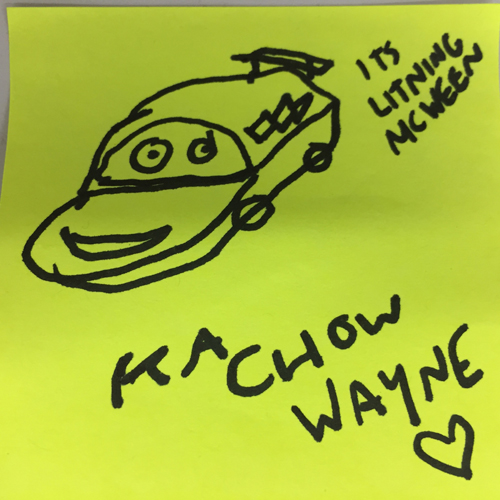 ITS
LITNING
MCWEEN
KA CHOW
WAYNE